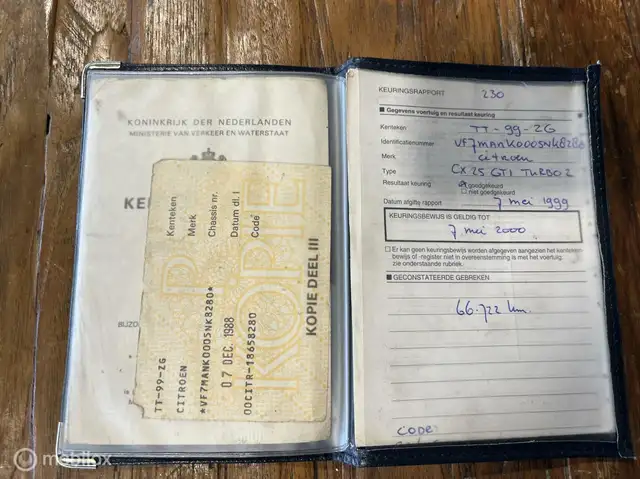 KONINKRIJK DER NEDERLANDEN
MINISTERIE VAN VERKEER EN WATERSTAAT
Kenteken
Merk
Chassis nr.
Datum dl. I
Code
TT-99-ZG
CITROEN
*VF7MANK0005NK8280*
07 DEC. 1988
00CITR-18658280
KOPIE
KOPIE DEEL III
KEURINGSRAPPORT 230
Gegevens voertuig en resultaat keuring
Kenteken TT-99-ZG
Identificatienummer VF7MANK0005NK8280
Merk Citroen
Type CX 25 GTI TURBO 2
Resultaat keuring goedgekeurd
niet goedgekeurd
Datum afgifte rapport 7 mei 1999
KEURINGSBEWIJS IS GELDIG TOT
7 mei 2000
Er kan geen keuringsbewijs worden afgegeven aangezien het kenteken-
bewijs of -register niet in overeenstemming is met het voertuig,
zie onderstaande rubriek.
GECONSTATEERDE GEBREKEN
66.722 km.
CODE
mobilox